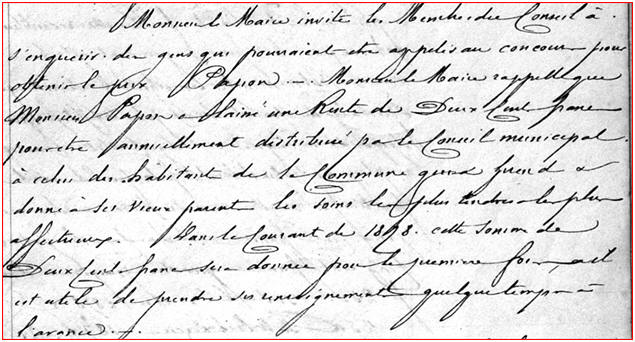 Monsieur le Maire invite les Membres du Conseil à
s'enquérir des gens qui pourraient être appelés au concours pour
obtenir le prix Papon. — Monsieur le Maire rappelle que
Monsieur Papon a laissé une Rente de Deux Cent francs
pour être annuellement distribué par le Conseil municipal
à celui des habitants de la Commune qui a
donné à ses vieux parents les soins les plus tendres et les plus
affectueux. Dans le Courant de 1898 cette somme de
Deux Cent francs sera donnée pour la première fois, et il
est utile de prendre ses renseignements quelque temps à
l'avance. —